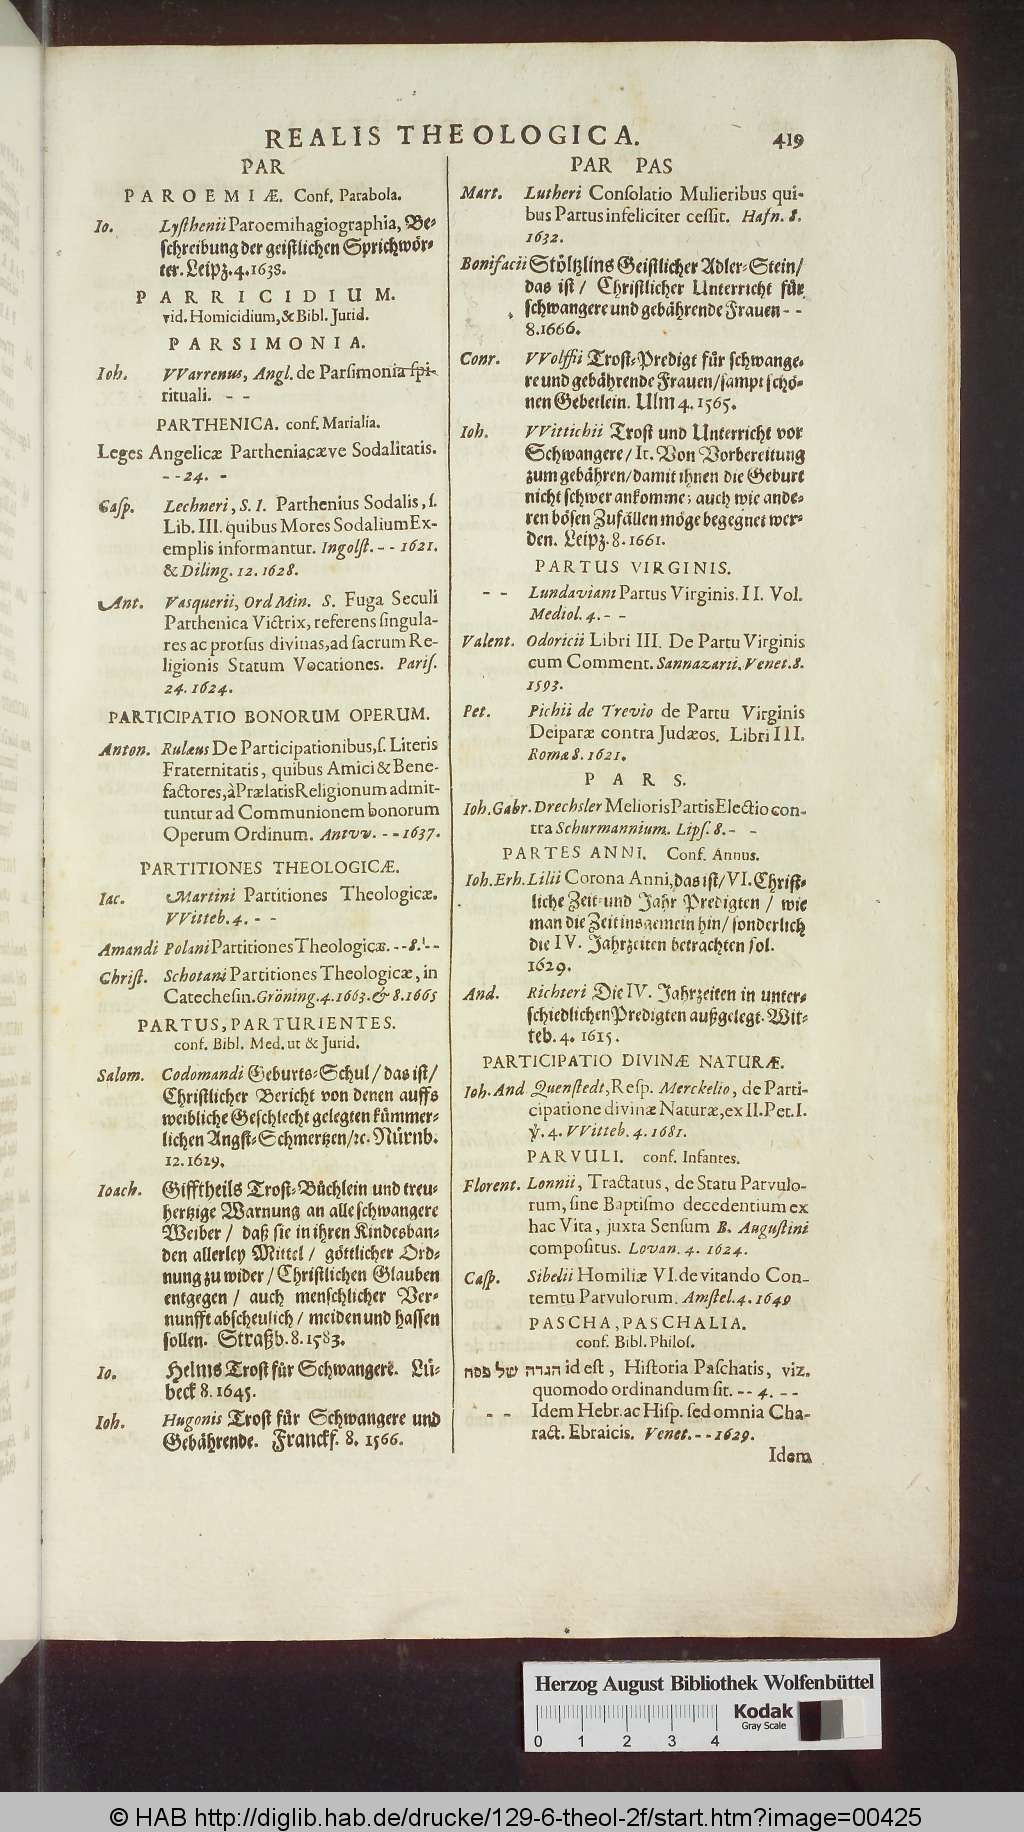 REALIS THEOLOGICA. 419
PAR
PAROEMIÆ. Conf. Parabola.
Io. Lyſthenii Paroemihagiographia, Be⸗
ſchreibung der geiſtlichen Sprichwör⸗
ter. Leipz. 4. 1638.
PARRICIDIUM.
vid. Homicidium, & Bibl. Jurid.
PARSIMONIA.
Ioh. VVarrenus, Angl. de Parſimonia ſpi-
rituali. - -
PARTHENICA. conf. Marialia.
Leges Angelicæ Partheniacæve Sodalitatis.
- - 24. -
Caſp. Lechneri, S. I. Parthenius Sodalis, ſ.
Lib. III. quibus Mores Sodalium Ex-
emplis informantur. Ingolſt. - - 1621.
& Diling. 12. 1628.
Ant. Vasquerii, Ord Min. S. Fuga Seculi
Parthenica Victrix, referens ſingula-
res ac prorſus divinas, ad ſacrum Re-
ligionis Statum Vocationes. Pariſ.
24. 1624.
PARTICIPATIO BONORUM OPERUM.
Anton. Rulæus De Participationibus, ſ. Literis
Fraternitatis, quibus Amici & Bene-
factores, à Prælatis Religionum admit-
tuntur ad Communionem bonorum
Operum Ordinum. Antvv. - - 1637.
PARTITIONES THEOLOGICÆ.
Iac. Martini Partitiones Theologicæ.
VVitteb. 4. - -
Amandi Polani Partitiones Theologicæ. - - 8. - -
Chriſt. Schotani Partitiones Theologicæ, in
Catecheſin. Gröning. 4. 1663. & 8. 1665
PARTUS, PARTURIENTES.
conf. Bibl. Med. ut & Jurid.
Salom. Codomandi Geburts⸗Schul / das iſt /
Chriſtlicher Bericht von denen auffs
weibliche Geſchlecht gelegten kümmer⸗
lichen Angſt⸗Schmertzen / ꝛc. Nürnb.
12. 1629.
Ioach. Gifftheils Troſt⸗Büchlein und treu⸗
hertzige Warnung an alle ſchwangere
Weiber / daß ſie in ihren Kindesban⸗
den allerley Mittel / göttlicher Ord⸗
nung zu wider / Chriſtlichen Glauben
entgegen / auch menſchlicher Ver⸗
nunfft abſcheulich / meiden und haſſen
ſollen. Straßb. 8. 1583.
Io. Helms Troſt für Schwangere. Lü⸗
beck 8. 1645.
Ioh. Hugonis Troſt für Schwangere und
Gebährende. Franckf. 8. 1566.
PAR PAS
Mart. Lutheri Conſolatio Mulieribus qui-
bus Partus infeliciter ceſſit. Hafn. 8.
1632.
Bonifacii Stöltzlins Geiſtlicher Adler⸗Stein /
das iſt / Chriſtlicher Unterricht für
ſchwangere und gebährende Frauen - -
8. 1666.
Conr. VVolffii Troſt⸗Predigt für ſchwange⸗
re und gebährende Frauen / ſampt ſchö⸗
nen Gebetlein. Ulm 4. 1565.
Ioh. VVittichii Troſt und Unterricht vor
Schwangere / It. Von Vorbereitung
zum gebähren / damit ihnen die Geburt
nicht ſchwer ankomme; auch wie ande⸗
ren böſen Zufällen möge begegnet wer⸗
den. Leipz. 8. 1661.
PARTUS VIRGINIS.
- - Lundaviani Partus Virginis. II. Vol.
Mediol. 4. - -
Valent. Odoricii Libri III. De Partu Virginis
cum Comment. Sannazarii. Venet. 8.
1593.
Pet. Pichii de Trevio de Partu Virginis
Deiparæ contra Judæos. Libri III.
Romæ 8. 1621.
PARS.
Ioh. Gabr. Drechsler Melioris Partis Electio con-
tra Schurmannium. Lipſ. 8. - -
PARTES ANNI. Conf. Annus.
Ioh. Erh. Lilii Corona Anni, das iſt / VI. Chriſt⸗
liche Zeit⸗ und Jahr Predigten / wie
man die Zeit insgemein hin / ſonderlich
die IV. Jahrzeiten betrachten ſol.
1629.
And. Richteri Die IV. Jahrzeiten in unter⸗
ſchiedlichen Predigten außgelegt. Wit⸗
teb. 4. 1615.
PARTICIPATIO DIVINÆ NATURÆ.
Ioh. And Quenſtedt, Reſp. Merckelio, de Parti-
cipatione divinæ Naturæ, ex II. Pet. I.
℣. 4. VVitteb. 4. 1681.
PARVULI. conf. Infantes.
Florent. Lonnii, Tractatus, de Statu Parvulo-
rum, ſine Baptiſmo decedentium ex
hac Vita, juxta Senſum B. Auguſtini
compoſitus. Lovan. 4. 1624.
Caſp. Sibelii Homiliæ VI. de vitando Con-
temtu Parvulorum. Amſtel. 4. 1649
PASCHA, PASCHALIA.
conf. Bibl. Philoſ.
הגדה של פסח id eſt, Hiſtoria Paſchatis, viz.
quomodo ordinandum ſit. - - 4. - -
- - Idem Hebr. ac Hiſp. ſed omnia Cha-
ract. Ebraicis. Venet. - - 1629.
Idem
Herzog August Bibliothek Wolfenbüttel
0 1 2 3 4
Kodak
Gray Scale
© HAB http://diglib.hab.de/drucke/129-6-theol-2f/start.htm?image=00425